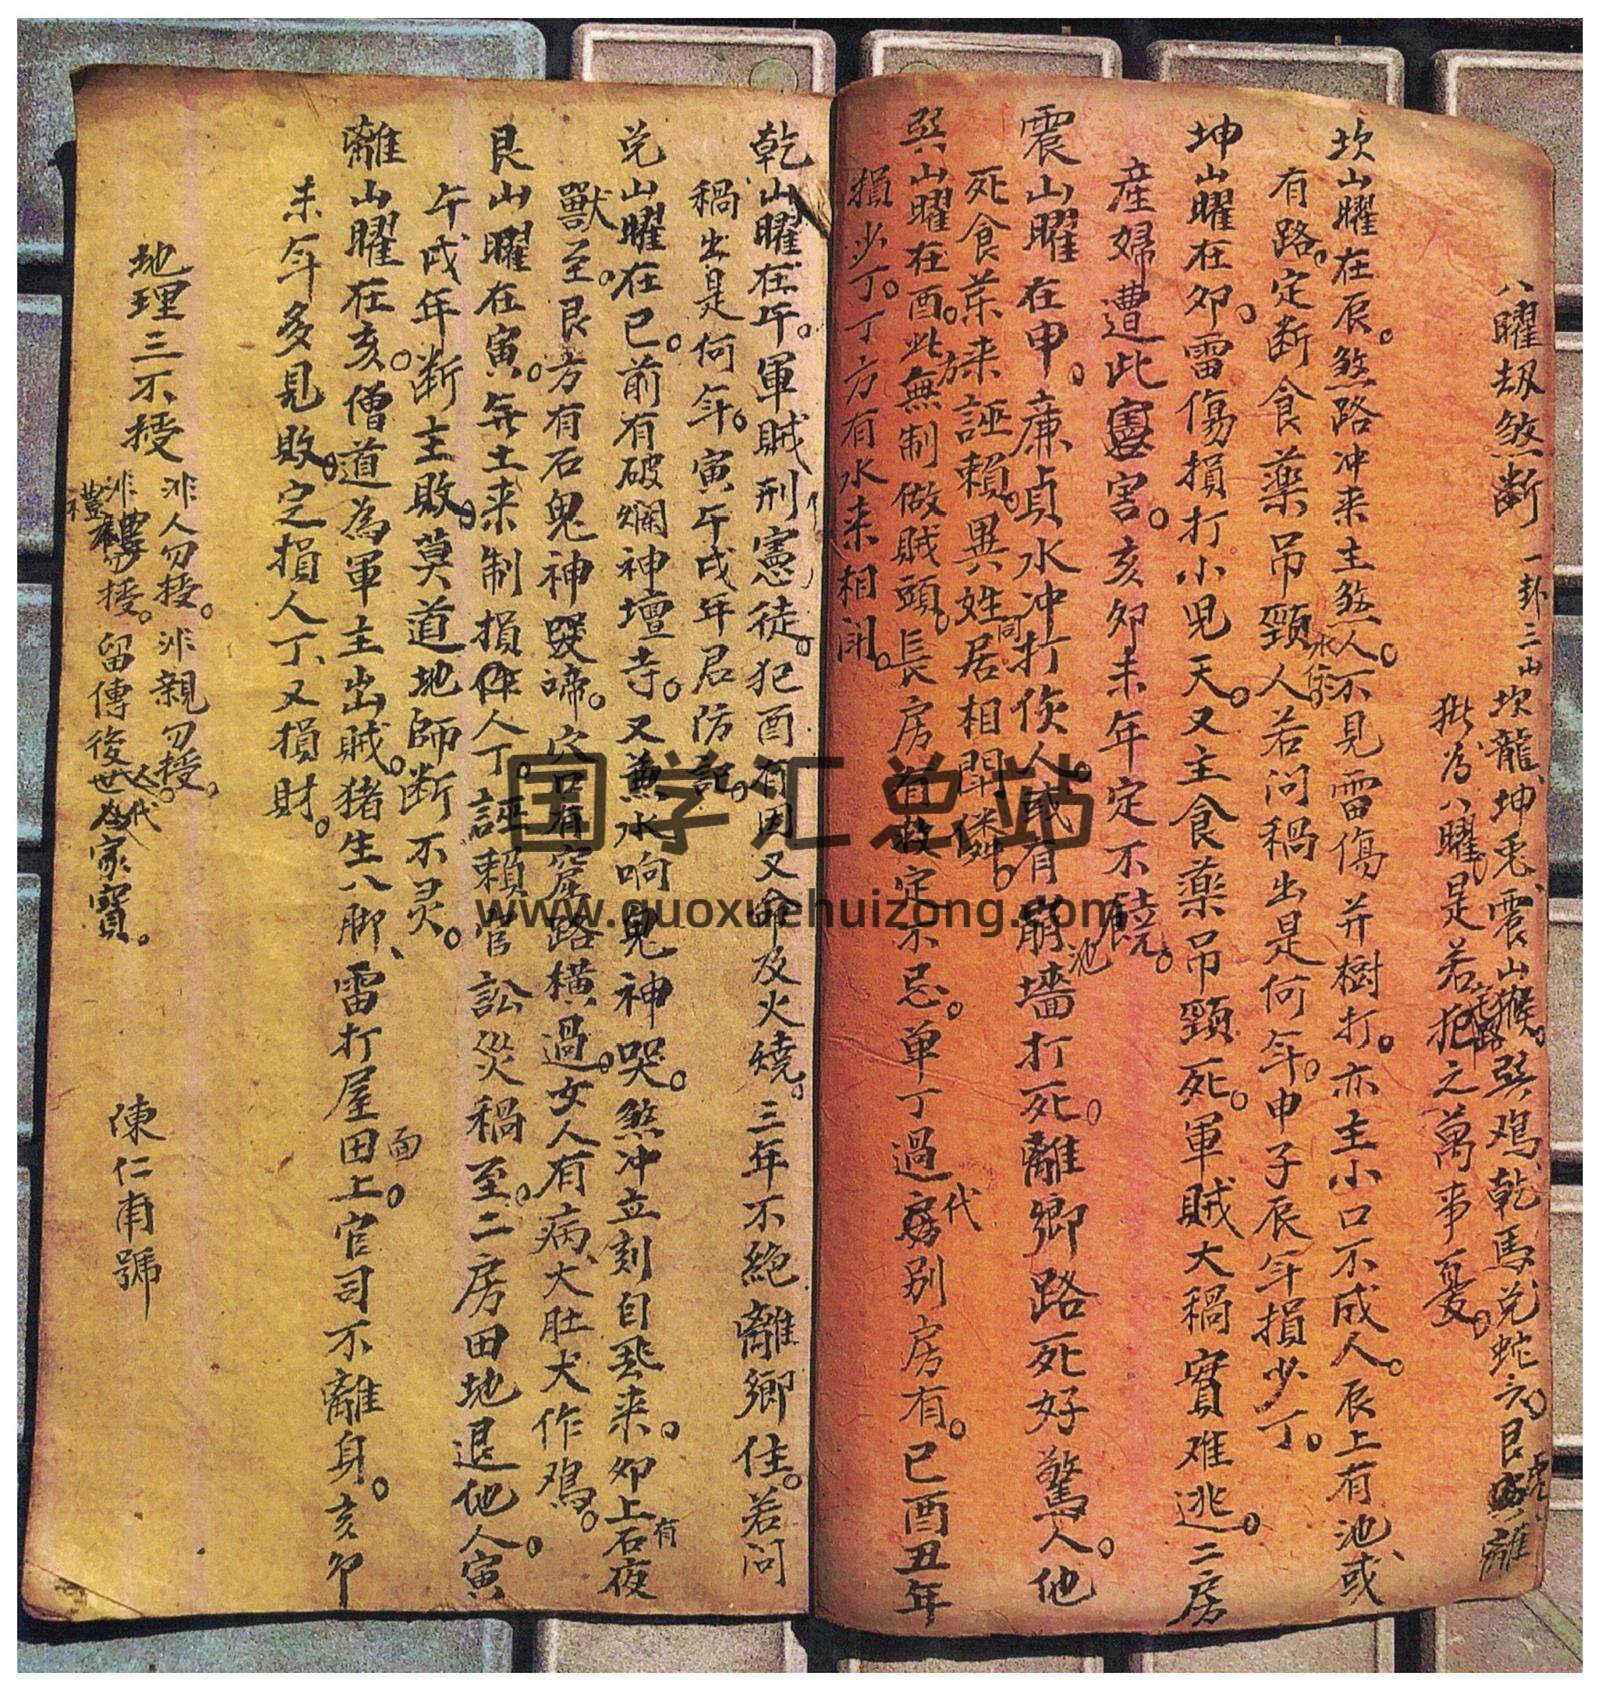 八曜刼煞断 一卦三山 坎龍、坤兎、震山猴。巽鳮、乾馬、兌蛇六。艮虎離
猪為八曜。是若犯之萬事憂。
坎山曜在辰。煞路冲来主煞人。不見雷傷并樹打。亦主小口不成人。辰上有池或
有路。定断食藥吊頸人水傷。若問禍出是何年。申子辰年損少丁。
坤山曜在夘。雷傷損打小児夭。又主食藥吊頸死。軍賊大禍實难逃。二房
産婦遭此害。亥夘未年定不饒。
震山曜在申。亷貞水冲打傷人。或有崩墻打死。離鄉路死好驚人。他
死食菜来誣賴。異姓同居相閙
巽山曜在酉。此方無制做賊頭。長房有救定不忌。单丁過代别房有。巳酉丑年
損少丁。丁方有水来相閗。
乾山曜在午。軍賊刑憲徒。犯酉有因又命及火燒。三年不絶離鄉住。若问
禍出是何年。寅午戌年君防記。
兌山曜在巳。前有破爛神壇寺。又兼水响鬼神哭。煞冲立刻自来。夘上有石夜
獸至。艮方有石鬼神哭啼。穴口有窟路横過。女人有病、大肚犬作鳮。
艮山曜在寅。無土来制損人丁。誣賴官訟災禍至。二房田地退他人。寅
午戌年断主敗。莫道地師断不灵。
離山曜在亥。僧道為軍主出賊。猪生八脚、雷打屋面田上。官司不離身。亥夘
未年多見敗。定損人丁又損財。
地理三不授 非人勿授。非親勿授。
非禮勿授。留傳後世人代為家寶。
陳仁甫號
国学汇总站
www.guoxuehuizong.com